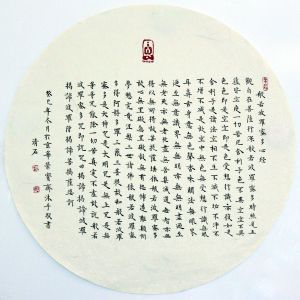 般若波羅蜜多心經
觀自在菩薩行深般若波羅蜜多時照見五
蘊皆空度一切苦厄舍利子色不異空空不異
色色即是空空即是色受想行識亦復如是
舍利子是諸法空相不生不滅不垢不淨不
增不減是故空中無色無受想行識無眼
耳鼻舌身意無色聲香味觸法無眼界
乃至無意識界無無明亦無無明盡乃至
無老死亦無老死盡無苦集滅道無智亦無
得以無所得故菩提薩埵依般若波羅蜜多
故心無罣礙無罣礙故無有恐怖遠離顛倒
夢想究竟涅槃三世諸佛依般若波羅蜜
多故得阿耨多羅三藐三菩提故知般若波羅
蜜多是大神咒是大明咒是無上咒是無
等等咒能除一切苦真實不虛故說般若
波羅蜜多咒即說咒曰揭諦揭諦波羅
揭諦波羅僧揭諦菩提薩婆訶
癸巳年冬月於京華榮寶齋沐手敬書
清石